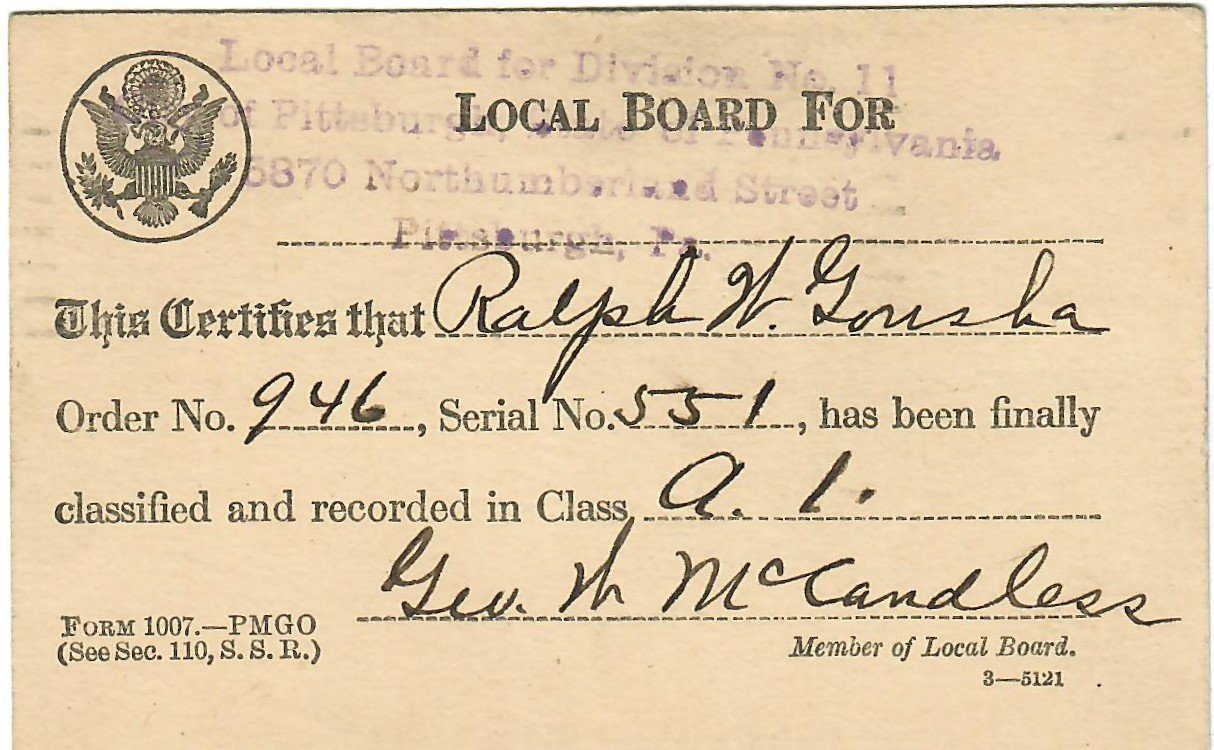 Local Board for Division No. 11
of Pittsburgh, State of Pennsylvania
5870 Northumberland Street
Pittsburgh, Pa.
LOCAL BOARD FOR
This Certifies that Ralph W. Gousha
Order No. 946, Serial No. 551, has been finally
classified and recorded in Class A. 1.
Geo. W McCandless
FORM 1007.—PMGO
(See Sec. 110, S. S. R.)
Member of Local Board.
3—5121